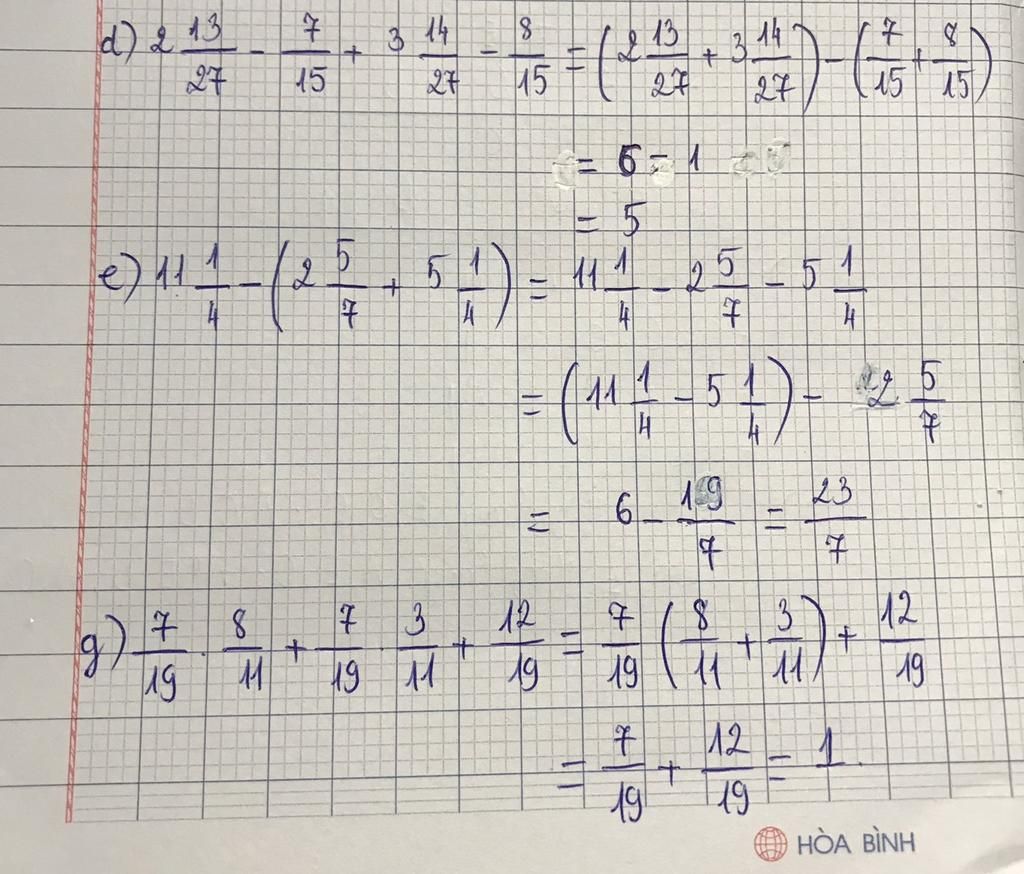 d) 2 13/27 - 7/15 + 3 14/27 - 8/15 = (2 13/27 + 3 14/27) - (7/15 + 8/15)
= 6 - 1
= 5
e) 11 1/4 - (2 5/7 + 5 1/4) = 11 1/4 - 2 5/7 - 5 1/4
= (11 1/4 - 5 1/4) - 2 5/7
= 6 - 19/7 = 23/7
g) 7/19 . 8/11 + 7/19 . 3/11 + 12/19 = 7/19 (8/11 + 3/11) + 12/19
= 7/19 + 12/19 = 1
HÒA BÌNH